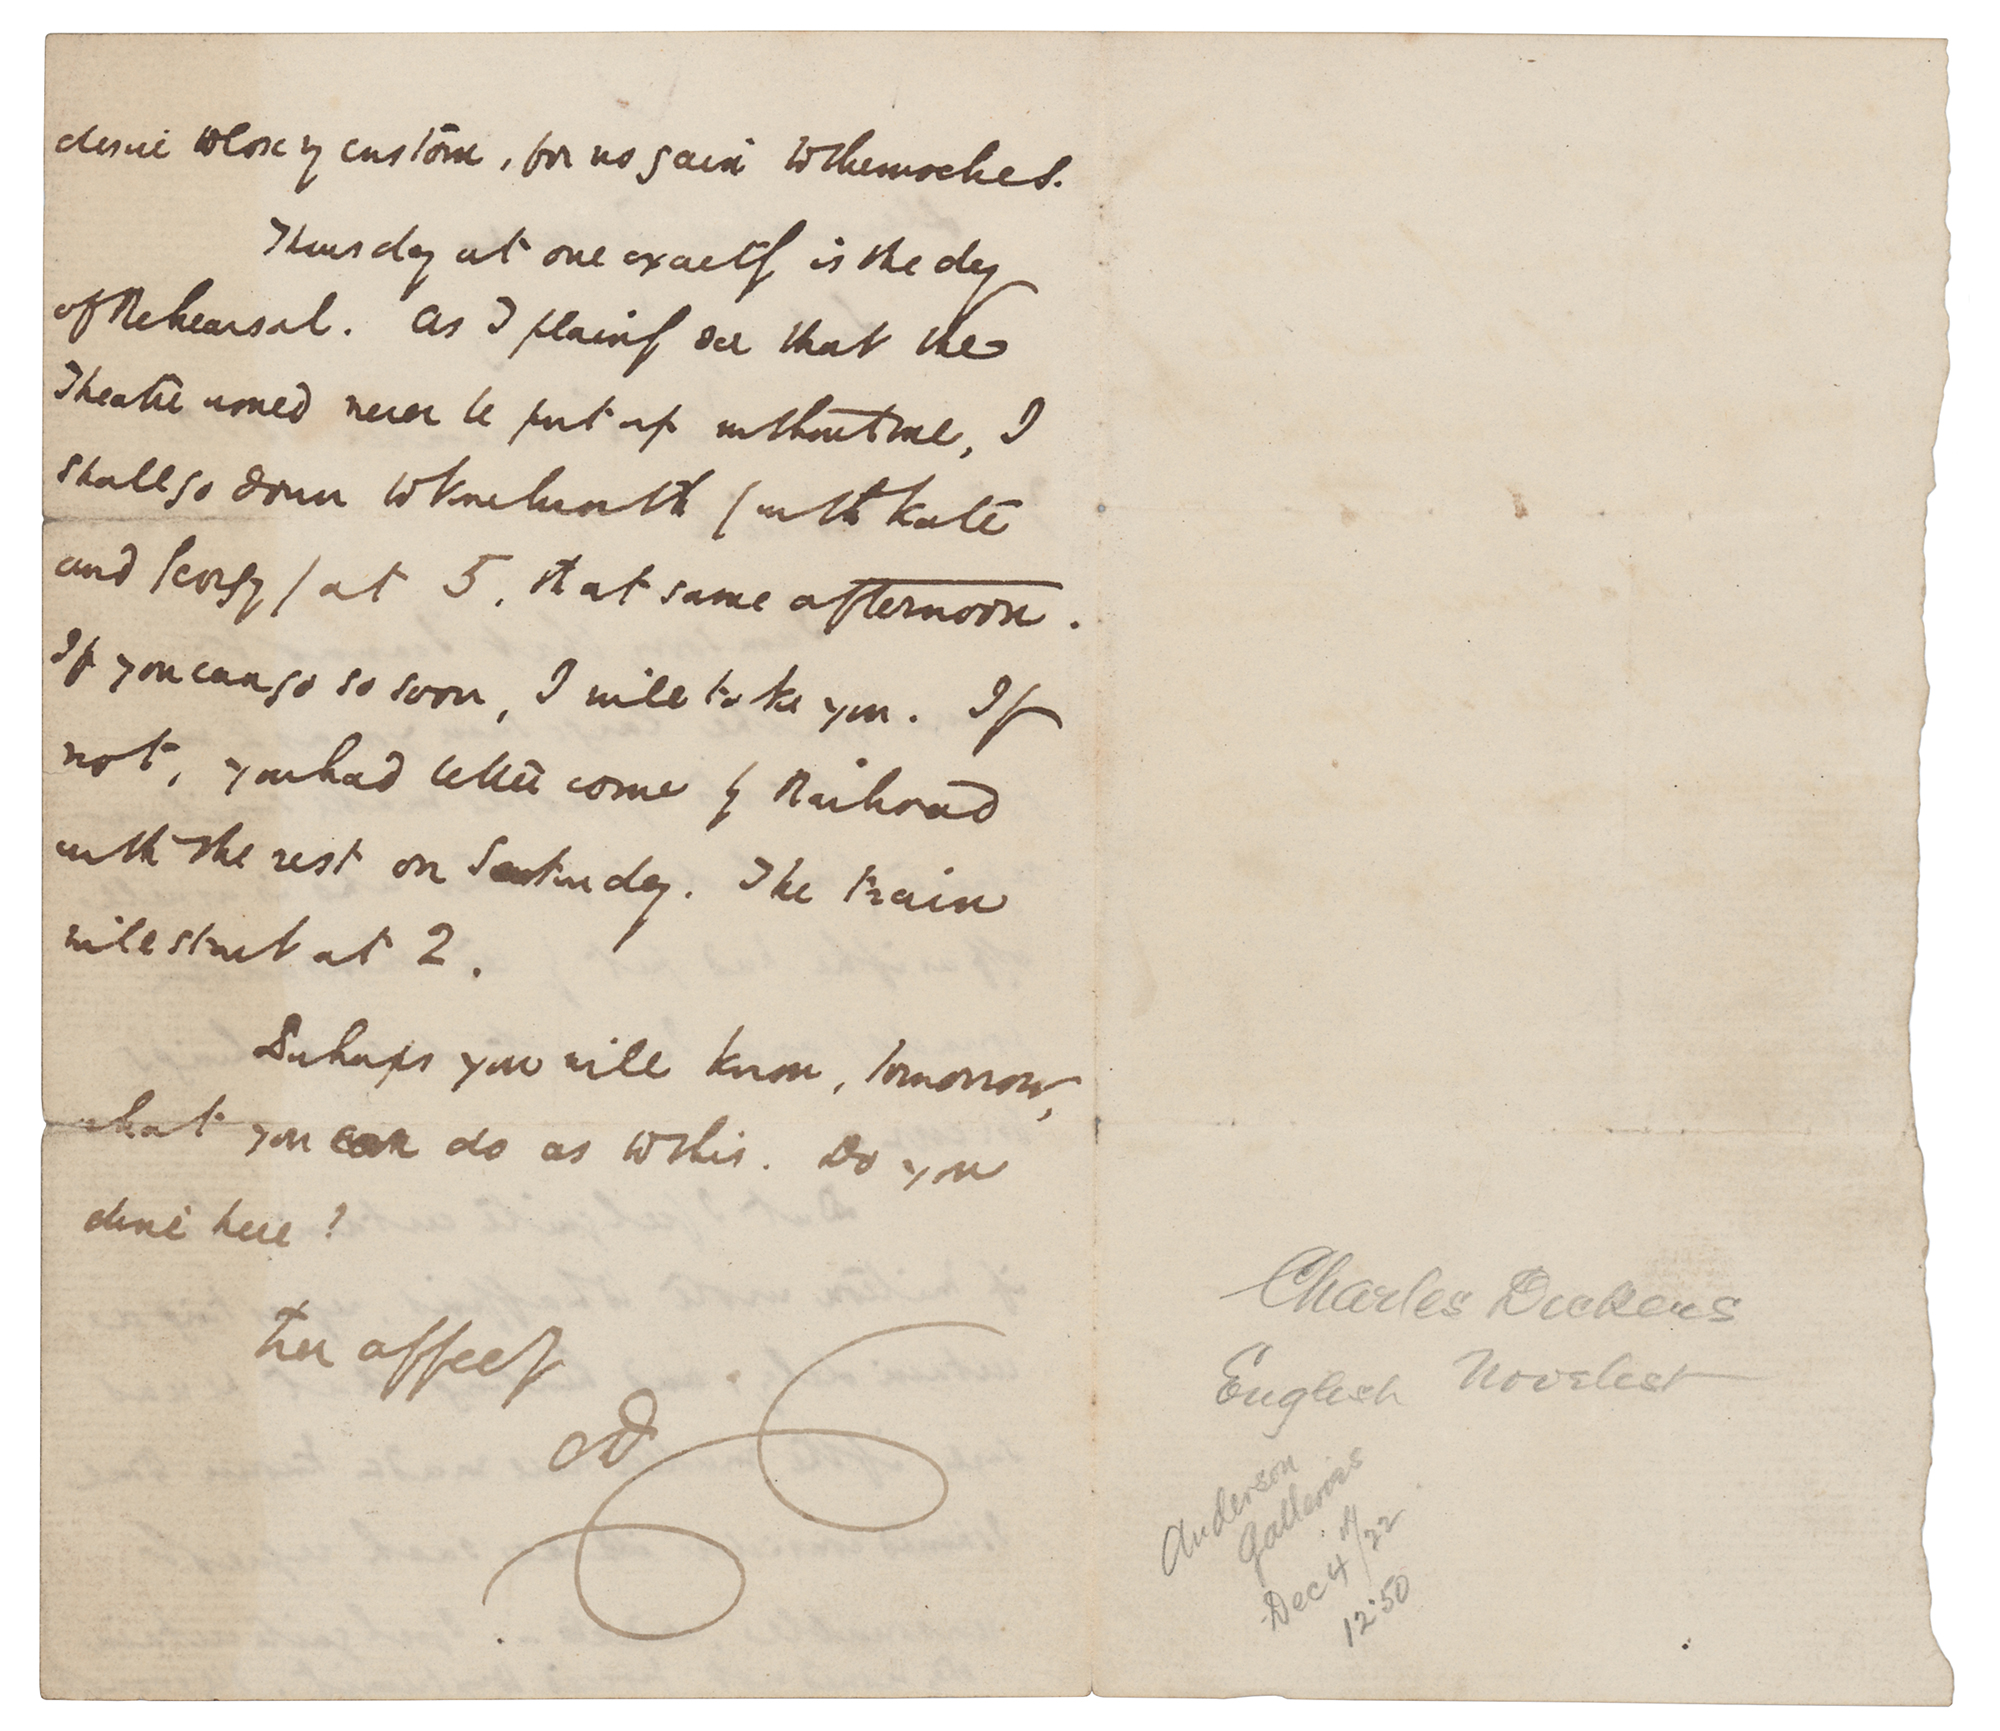 desire to lose my custom, for no gain to themselves.
Thursday at one exactly is the day
of Rehearsal. As I plainly see that the
Theatre would never be put up without me, I
shall go down to Knebworth (with Kate
and Georgy) at 5, that same afternoon.
If you can go so soon, I will take you. If
not, you had better come by Railroad
with the rest on Saturday. The train
will start at 2.
Perhaps you will know, tomorrow,
what you can do as to this. Do you
dine here?
Ever affecy
CD
Charles Dickens
English Novelist
Anderson
Galleries
Dec 4/22
12.50